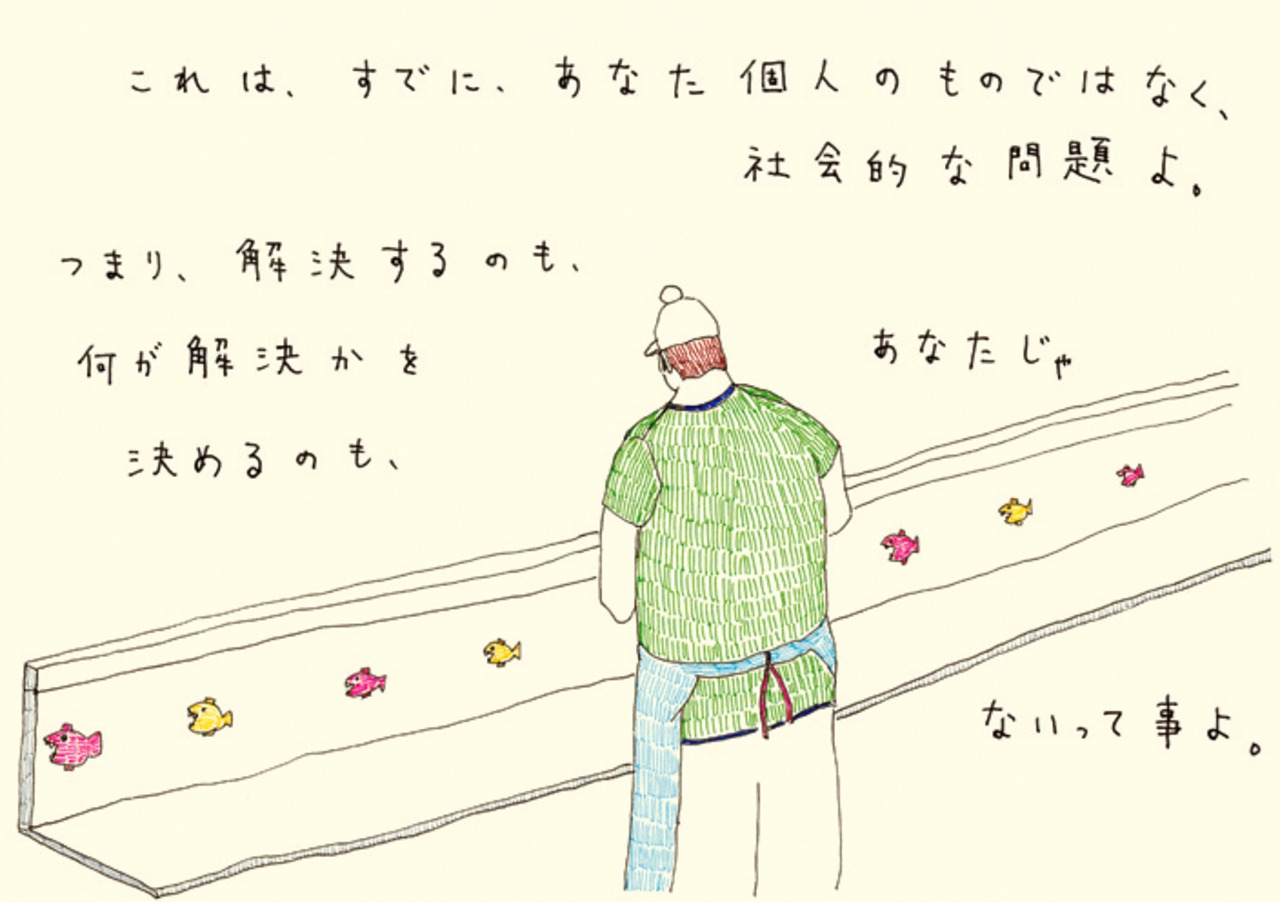 これは、すでに、あなた個人のものではなく、
社会的な問題よ。
つまり、解決するのも、
何が解決かを
決めるのも、
あなたじゃ
ないって事よ。